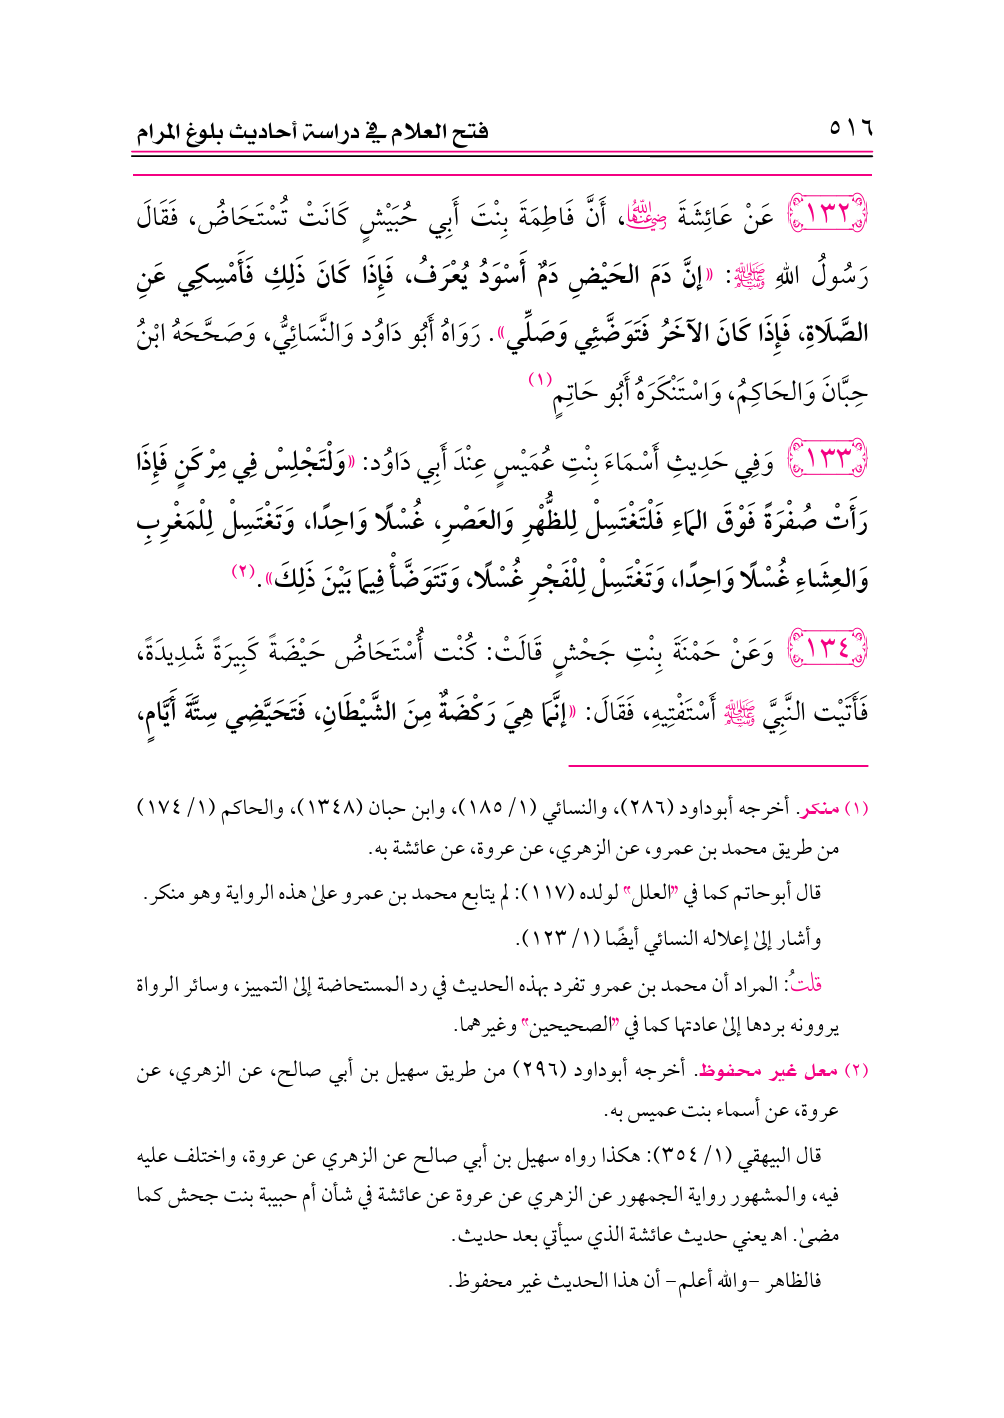 ٥١٦ فتح العلام في دراسة أحاديث بلوغ المرام
١٣٢ عَنْ عَائِشَةَ رضي الله عنها، أَنَّ فَاطِمَةَ بِنْتَ أَبِي حُبَيْشٍ كَانَتْ تُسْتَحَاضُ، فَقَالَ
رَسُولُ اللهِ ﷺ: «إِنَّ دَمَ الحَيْضِ دَمٌ أَسْوَدُ يُعْرَفُ، فَإِذَا كَانَ ذَلِكِ فَأَمْسِكِي عَنِ
الصَّلَاةِ، فَإِذَا كَانَ الآخَرُ فَتَوَضَّئِي وَصَلِّي». رَوَاهُ أَبُو دَاوُد وَالنَّسَائِيُّ، وَصَحَّحَهُ ابْنُ
حِبَّانَ وَالحَاكِمُ، وَاسْتَنْكَرَهُ أَبُو حَاتِمٍ(١)
١٣٣ وَفِي حَدِيثِ أَسْمَاءَ بِنْتِ عُمَيْسٍ عِنْدَ أَبِي دَاوُد: «وَلْتَجْلِسْ فِي مِرْكَنٍ فَإِذَا
رَأَتْ صُفْرَةً فَوْقَ المَاءِ فَلْتَغْتَسِلْ لِلظُّهْرِ وَالعَصْرِ، غُسْلًا وَاحِدًا، وَتَغْتَسِلْ لِلْمَغْرِبِ
وَالعِشَاءِ غُسْلًا وَاحِدًا، وَتَغْتَسِلْ لِلْفَجْرِ غُسْلًا، وَتَتَوَضَّأْ فِيمَا بَيْنَ ذَلِكَ».(٢)
١٣٤ وَعَنْ حَمْنَةَ بِنْتِ جَحْشٍ قَالَتْ: كُنْت أُسْتَحَاضُ حَيْضَةً كَبِيرَةً شَدِيدَةً،
فَأَتَيْت النَّبِيَّ ﷺ أَسْتَفْتِيهِ، فَقَالَ: «إنَّمَا هِيَ رَكْضَةٌ مِنَ الشَّيْطَانِ، فَتَحَيَّضِي سِتَّةَ أَيَّامٍ،
(١) منكر. أخرجه أبوداود (٢٨٦)، والنسائي (١/ ١٨٥)، وابن حبان (١٣٤٨)، والحاكم (١/ ١٧٤)
من طريق محمد بن عمرو، عن الزهري، عن عروة، عن عائشة به.
قال أبوحاتم كما في "العلل" لولده (١١٧): لم يتابع محمد بن عمرو علىٰ هذه الرواية وهو منكر.
وأشار إلىٰ إعلاله النسائي أيضًا (١/ ١٢٣).
قلتُ: المراد أن محمد بن عمرو تفرد بهذه الحديث في رد المستحاضة إلىٰ التمييز، وسائر الرواة
يروونه بردها إلىٰ عادتها كما في "الصحيحين" وغيرهما.
(٢) معل غير محفوظ. أخرجه أبوداود (٢٩٦) من طريق سهيل بن أبي صالح، عن الزهري، عن
عروة، عن أسماء بنت عميس به.
قال البيهقي (١/ ٣٥٤): هكذا رواه سهيل بن أبي صالح عن الزهري عن عروة، واختلف عليه
فيه، والمشهور رواية الجمهور عن الزهري عن عروة عن عائشة في شأن أم حبيبة بنت جحش كما
مضىٰ. اﻫ يعني حديث عائشة الذي سيأتي بعد حديث.
فالظاهر -والله أعلم- أن هذا الحديث غير محفوظ.